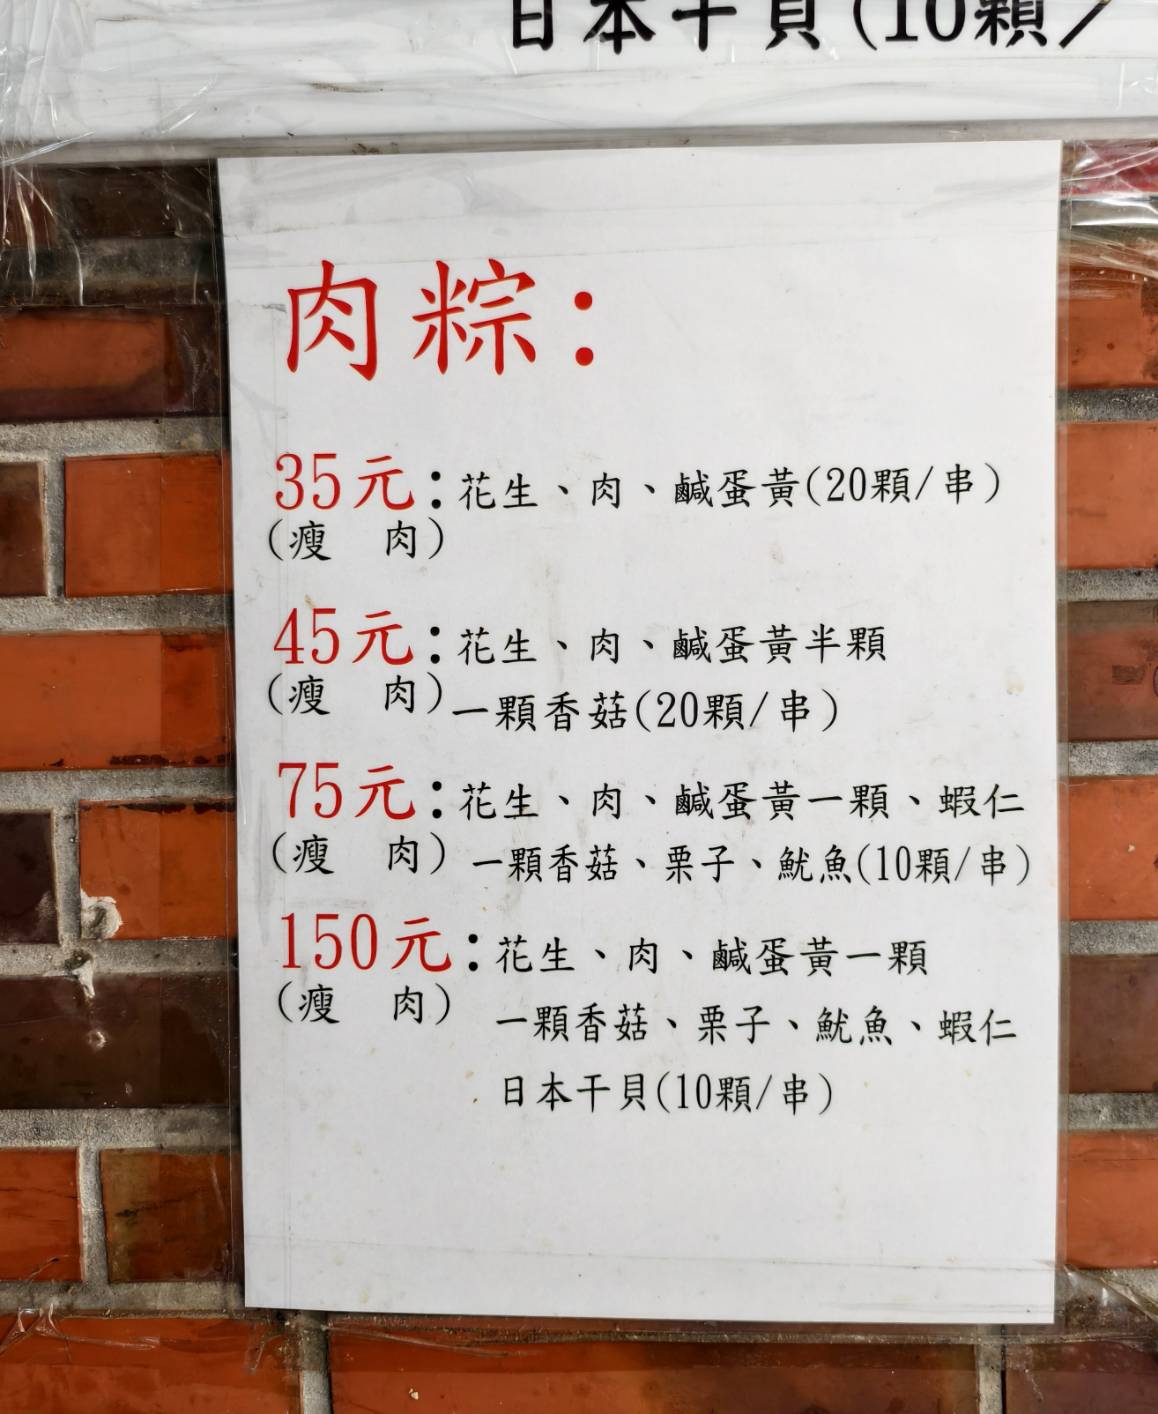 日本干貝(10顆/
肉粽：
35元：花生、肉、鹹蛋黃(20顆/串)
(瘦　肉)
45元：花生、肉、鹹蛋黃半顆
(瘦　肉)一顆香菇(20顆/串)
75元：花生、肉、鹹蛋黃一顆、蝦仁
(瘦　肉)一顆香菇、栗子、魷魚(10顆/串)
150元：花生、肉、鹹蛋黃一顆
(瘦　肉)　一顆香菇、栗子、魷魚、蝦仁
日本干貝(10顆/串)